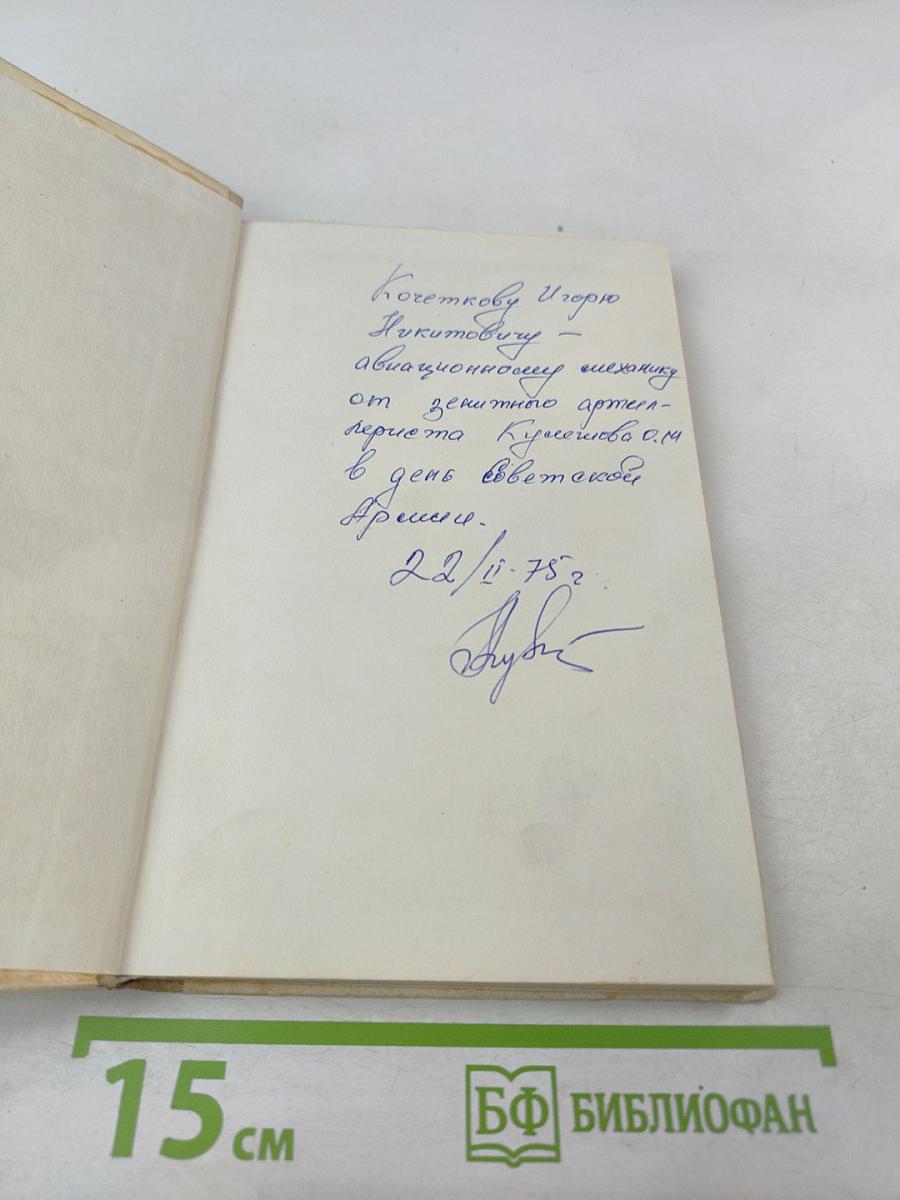 Кочеткову Игорю
Никитовичу –
авиационному механику
от зенитного артил-
лериста Кулешова О.М
в день Советской
Армии.
22/II-75 г.
15 см
БФ БИБЛИОФАН